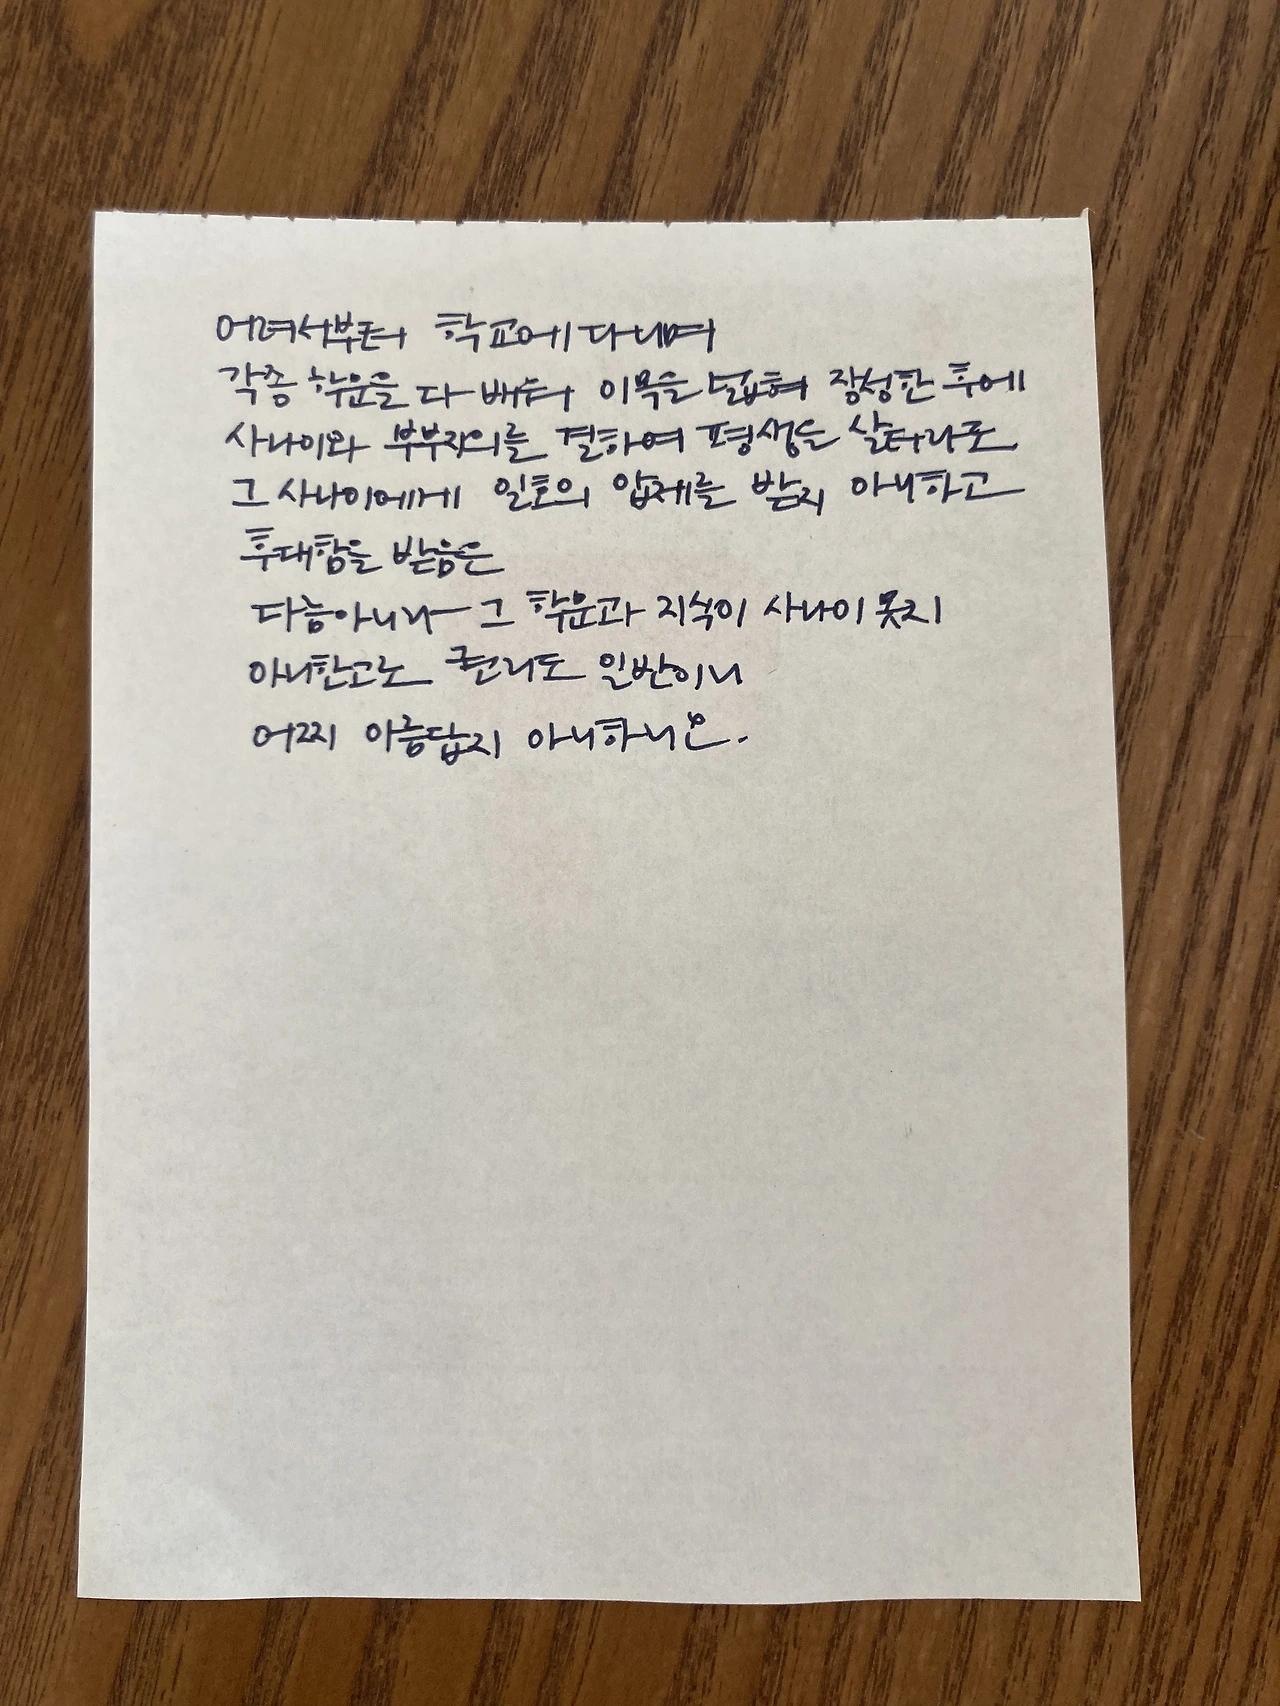 어려서부터 학교에 다니며
각종 학문을 다 배워 이목을 넓혀 장성한 후에
사나이와 부부지의를 결하여 평생을 살더라도
그 사나이에게 일호의 압제를 받지 아니하고
후대함을 받음은
다름아니라 그 학문과 지식이 사나이 못지
아니한고로 권리도 일반이니
어찌 아름답지 아니하리오.